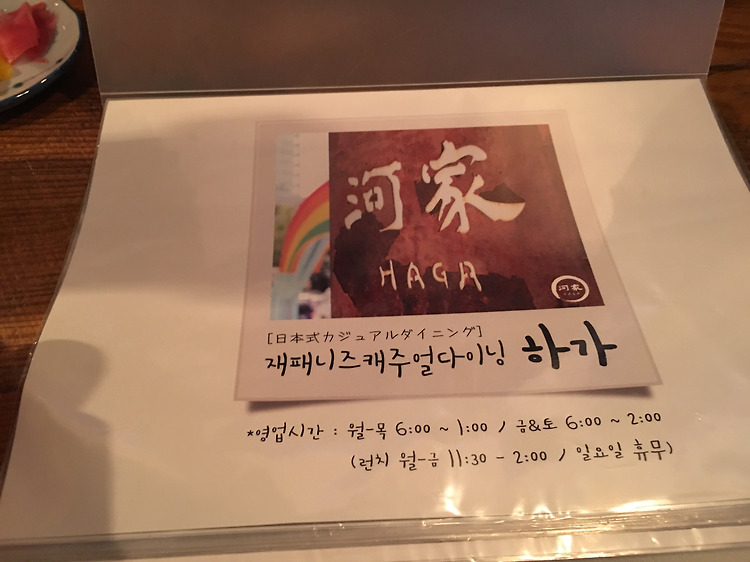 河家
HAGA
河家
[日本式カジュアルダイニング]
재패니즈캐주얼다이닝 하가
*영업시간 : 월-목 6:00 ~ 1:00 / 금&토 6:00 ~ 2:00
(런치 월-금 11:30 - 2:00 / 일요일 휴무)